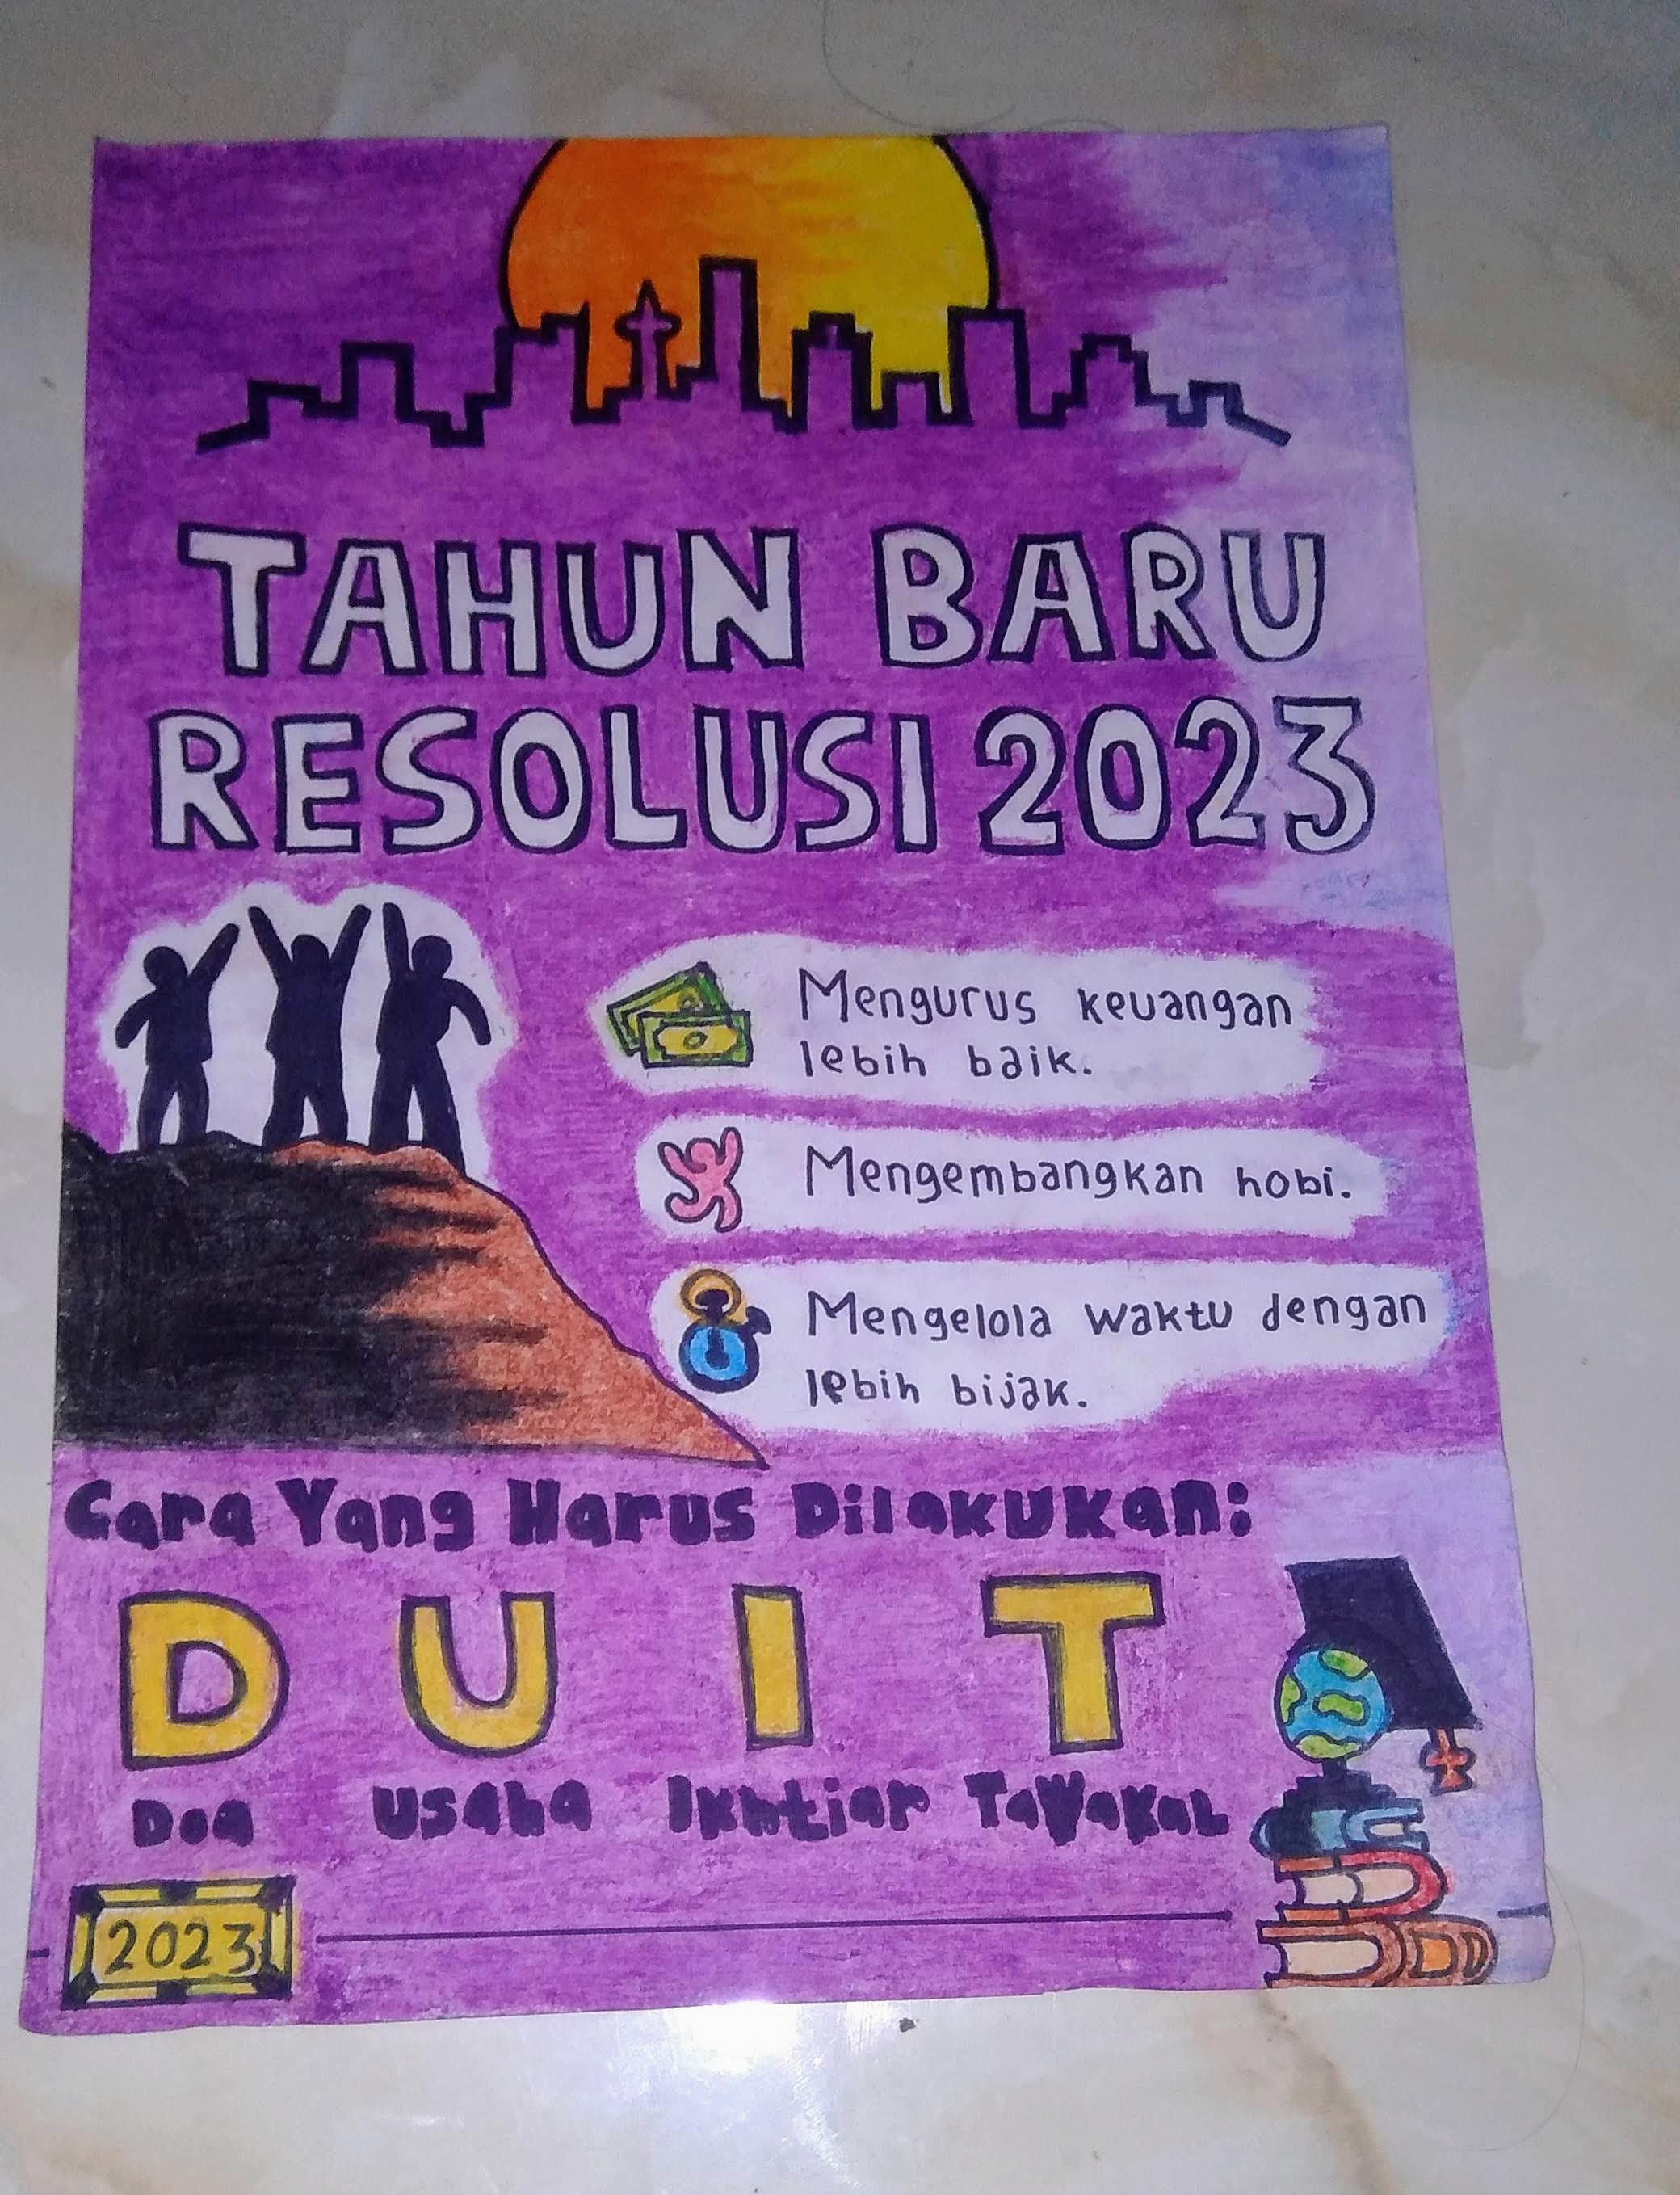 TAHUN BARU
RESOLUSI 2023
Mengurus keuangan
lebih baik.
Mengembangkan hobi.
Mengelola waktu dengan
lebih bijak.
Cara Yang Harus Dilakukan:
D U I T
Doa Usaha Ikhtiar TaWaKaL
2023